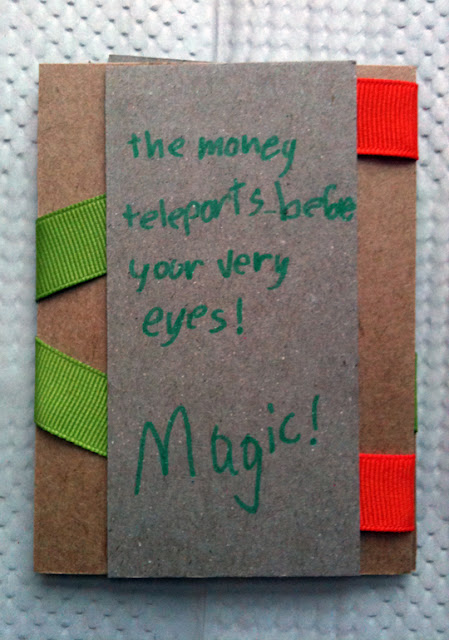 the money
teleports before
your very
eyes!
Magic!